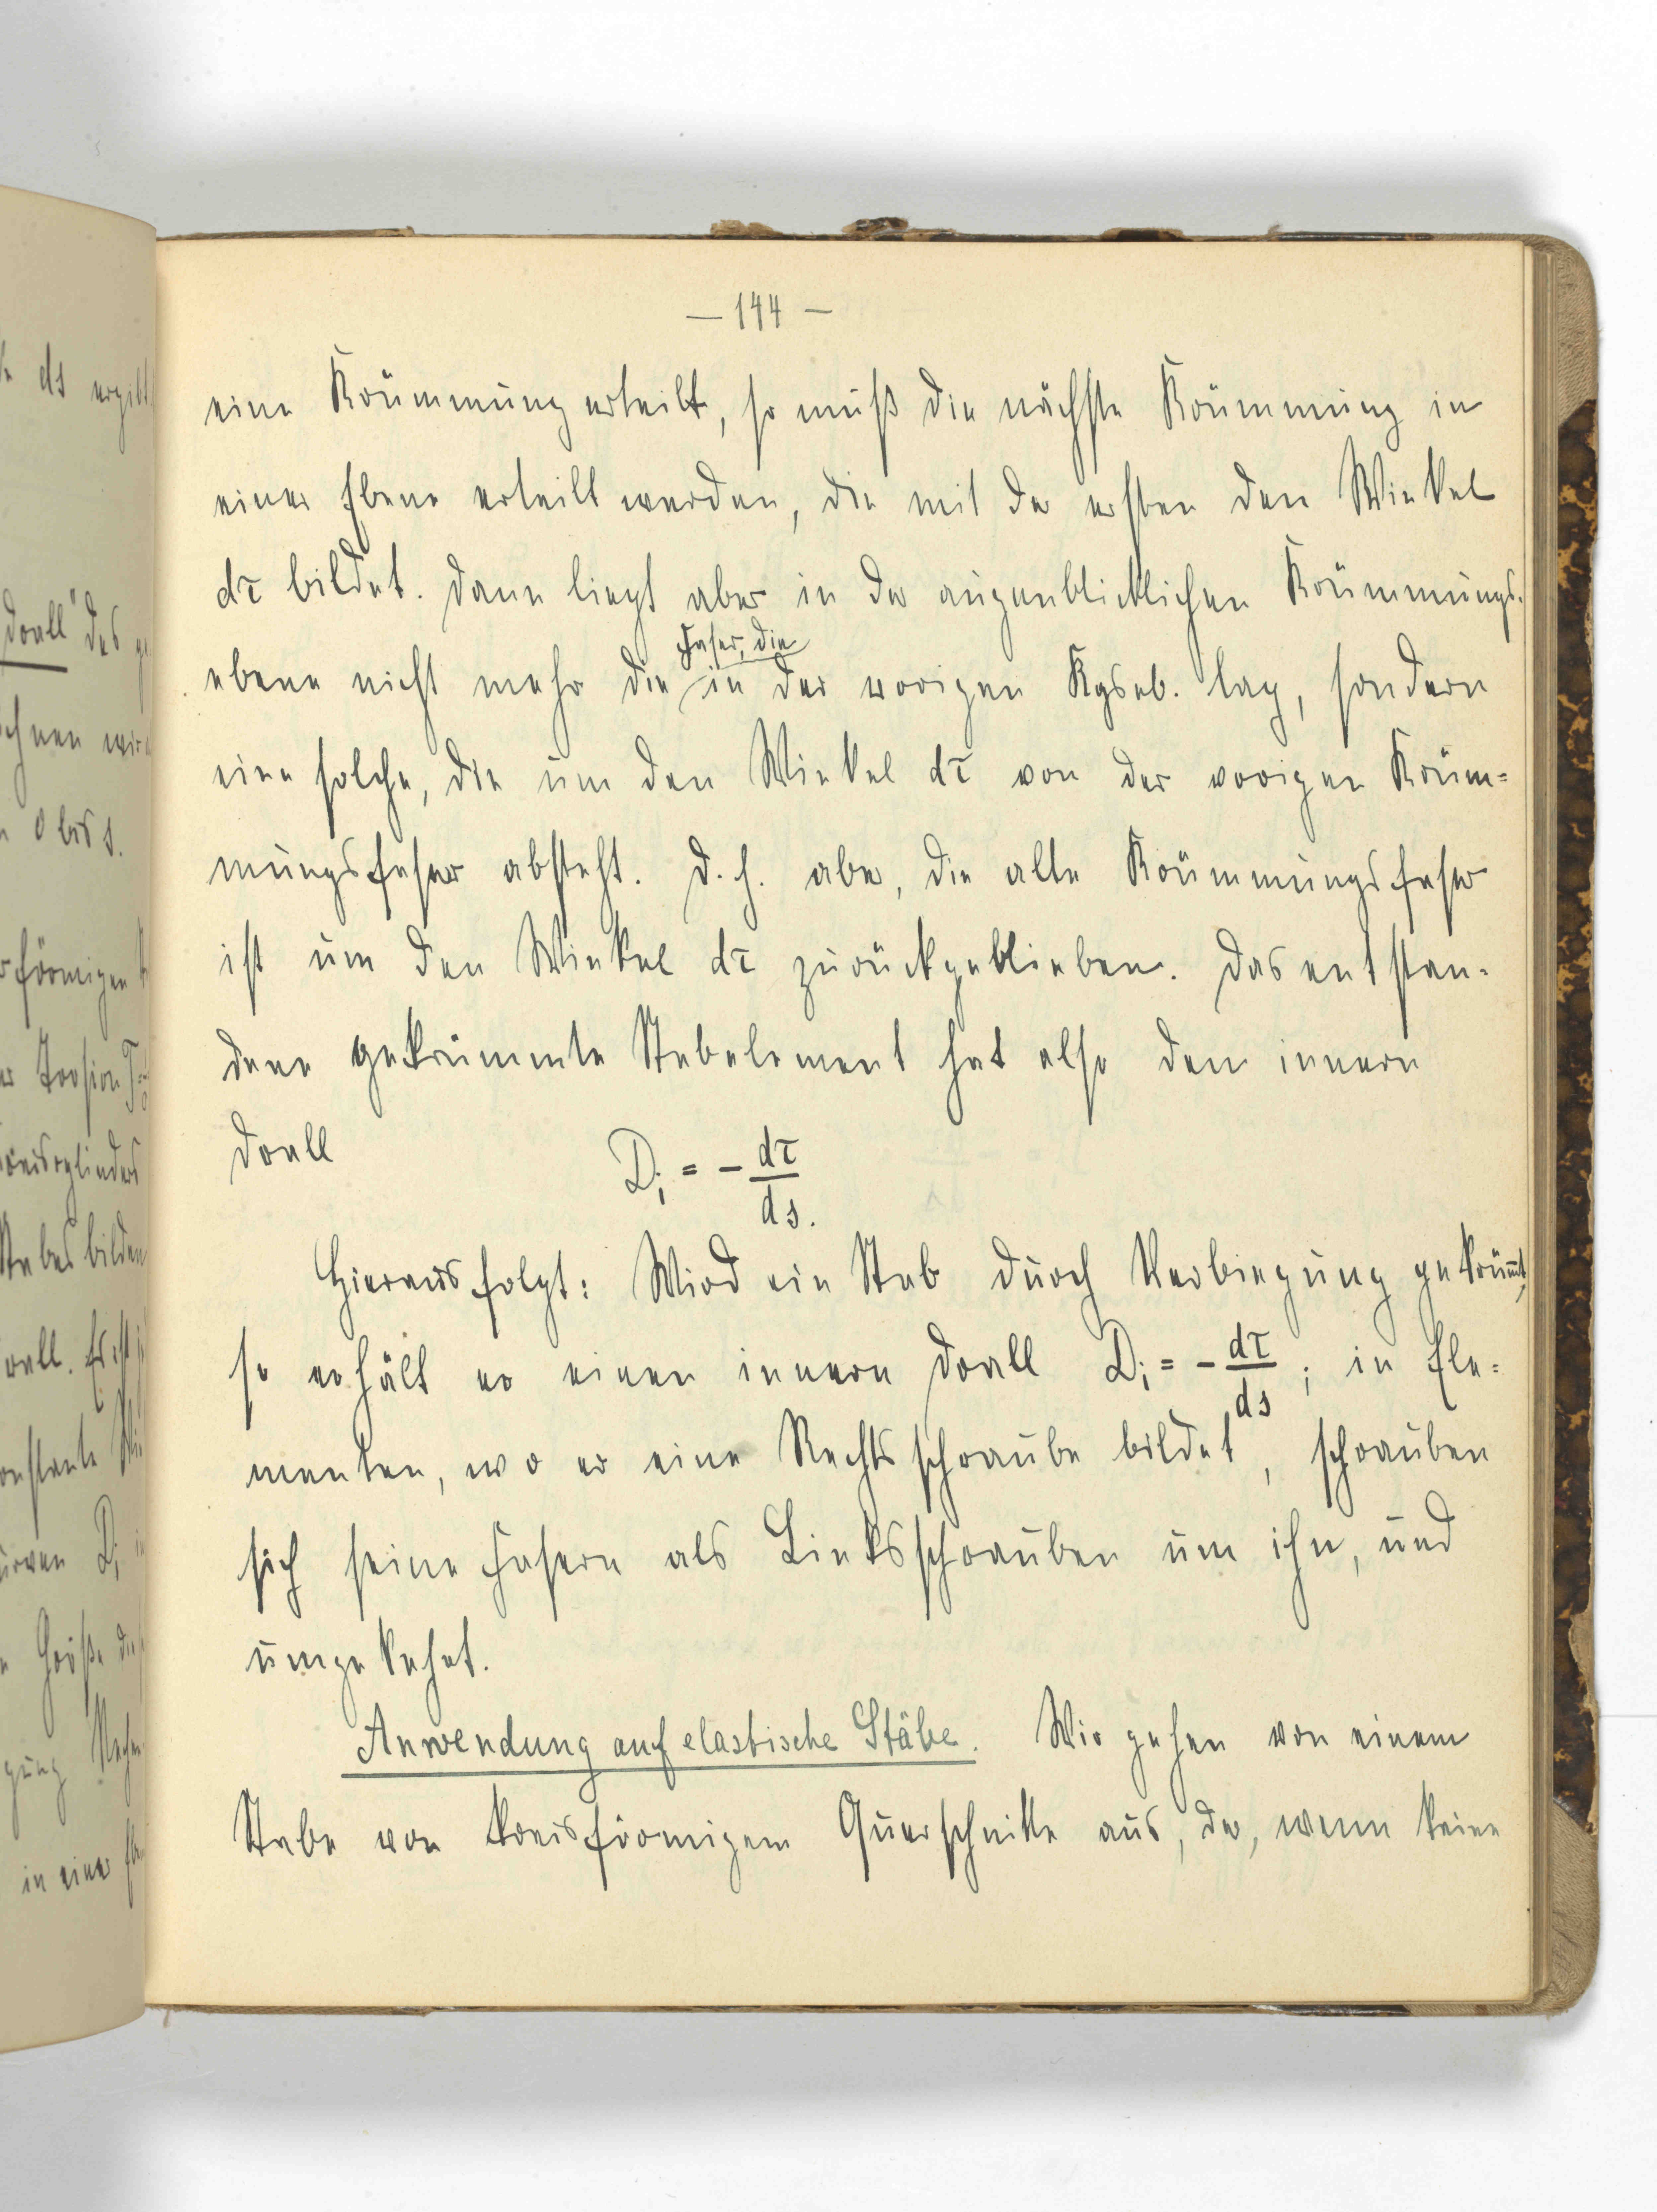 — 144 —
eine Krümmung erteilt, so muß die nächste Krümmung in
einer Ebene erteilt werden, die mit der ersten den Winkel
dτ bildet. Dann liegt aber in der augenblicklichen Krümmungs-
Faser, die
ebene nicht mehr die in der vorigen Kgseb. lag, sondern
eine solche, die um den Winkel dτ von der vorigen Krüm=
mungsfaser absteht. D.h. aber, die alte Krümmungsfaser
ist um den Winkel dτ zurückgeblieben. Das entstan-
dene gekrümmte Stabelement hat also den innern
Drall Dᵢ = − dτ/ds.
Hieraus folgt: Wird ein Stab durch Verbiegung gekrümt,
so erhält er einen innern Drall Dᵢ = − dτ/ds ; in Ele=
menten, wo er eine Rechtsschraube bildet, schrauben
sich seine Fasern als Linksschrauben um ihn, und
umgekehrt.
Anwendung auf elastische Stäbe. Wir gehen von einem
Stabe von kreisförmigem Querschnitte aus, der, wenn keine
ds ergibt
Drall" des
chnen wird
0 bis s.
förmigen
Torsion T
Kreiszylinders
Stabes bilden
rall. Es ist
onstante
urven Dᵢ
Größe
gung
in einer